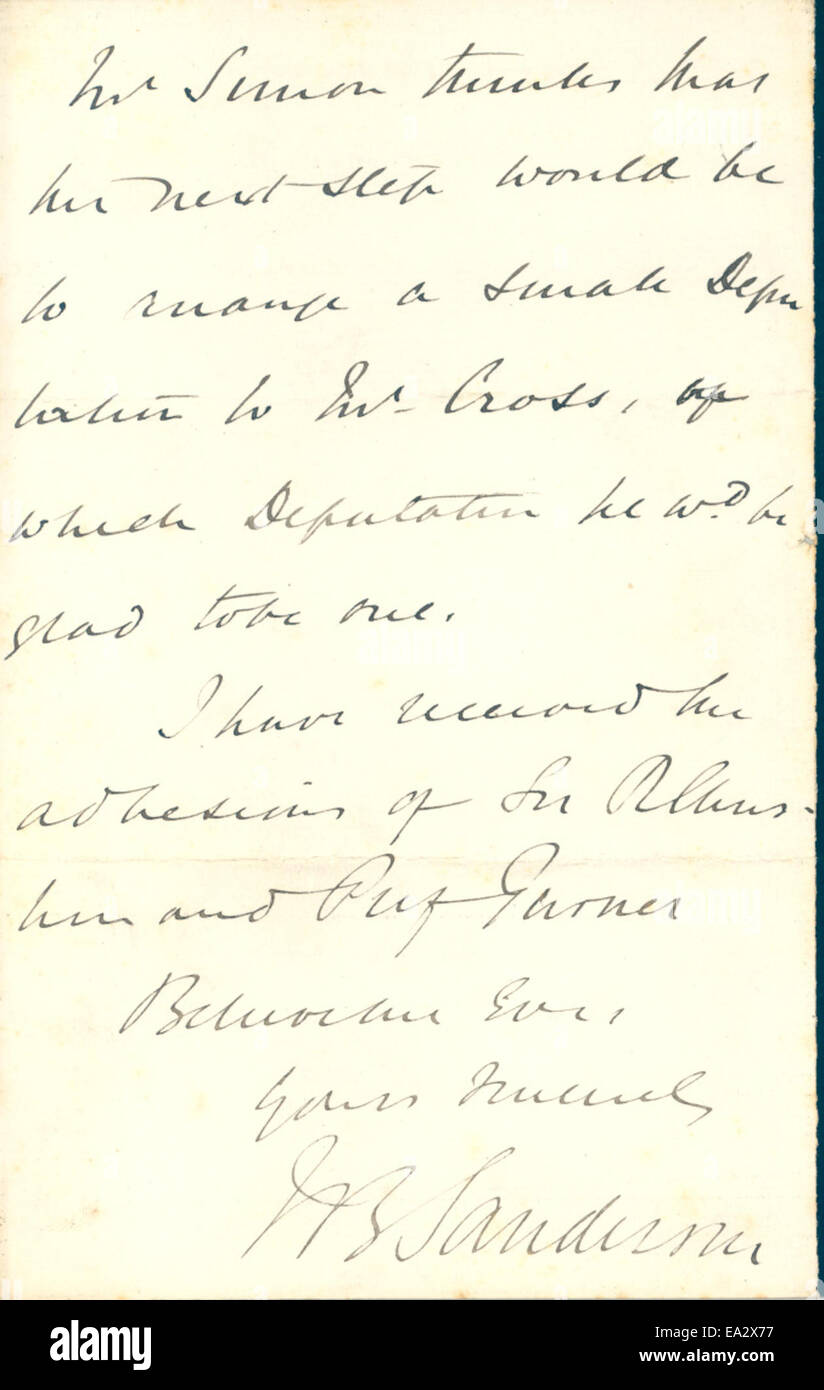 Mr Simon thinks that
the next step would be
to arrange a small Depu
tation to Mr Cross, of
which Deputation he wd. be
glad to be one.
I have received the
adhesions of Sir R Chris-
tison and Prof Turner
Believe me Ever
Yours sincerely
JB Sanderson
alamy
Image ID: EA2X77
www.alamy.com